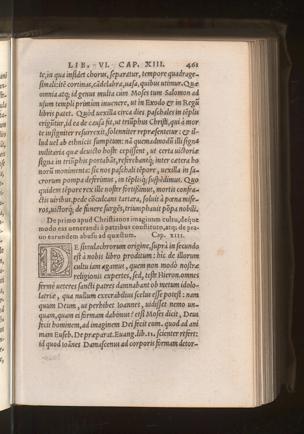 LIB. VI. CAP. XIII. 461
te, in qua insidet chorus, separatur, tempore quadrage-
simali: itē cortinas, cādelabra, uasa, quibus utimur. Quæ
omnia atq; id genus multa cum Moses tum Salomon ad
usum templi primum inuenere, ut in Exodo & in Regū
libris patet. Quòd uexilla circa dies paschales in tēplis
erigūtur, id ea de causa fit, ut triūphus Christi, qui à mor
te insigniter resurrexit, solenniter repræsentetur: & il-
lud uel ab ethnicis sumptum: nā quemadmodū illi signa
militaria quæ deuicto hosti eripissent, ut certa uictoriæ
signa in triūphis portabāt, referebantq; inter cætera ho
norū monimenta: sic nos paschali tēpore, uexilla in sa-
crorum pompa deferimus, in tēplisq; suspēdimus. Quo
quidem tēpore rex ille noster fortissimus, mortis confra-
ctis uiribus, pede cōculcans tartara, soluit à pœna mise-
ros, uictorq; de funere surgēs, triumphauit pōpa nobili.
De primo apud Christianos imaginum cultu, deq; quo
modo eius uenerandi à patribus constituto, atq; de pra-
uo earundem abusu ad quæstum. Cap. XIII.
DE simulachrorum origine, suprà in secundo
est à nobis libro proditum: hic de illorum
cultu iam agamus, quem non modò nostræ
religionis expertes, sed, teste Hieronymo, omnes
fermè ueteres sancti patres damnabant ob metum idolo-
latriæ, qua nullum execrabilius scelus esse potest: nam
quum Deum, ut perhibet Ioannes, uidisset nemo un-
quam, quam ei formam dabimus? etsi Moses dicit, Deus
fecit hominem, ad imaginem Dei fecit eum. quod ad ani-
mam Euseb. De præparat. Euang. lib. 11. scienter refert:
id quod Ioānes Damascenus ad corporis formam detor-